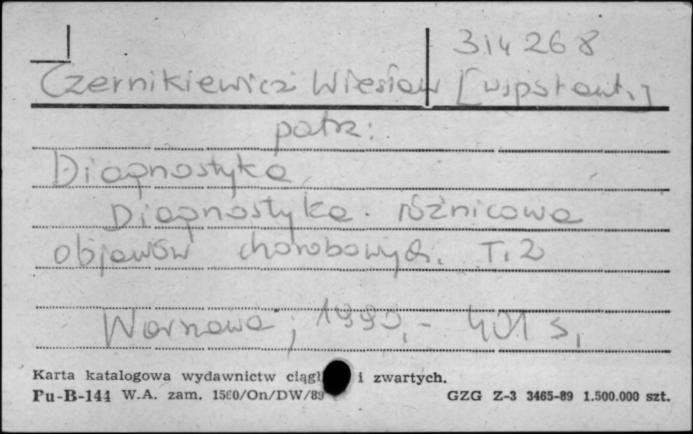 314268
Czernikiewicz Wiesław [współaut.]
patrz:
Diagnostyka
Diagnostyka różnicowa
objawów chorobowych. T. 2
Warszawa, 1990. - 401 s.
Karta katalogowa wydawnictw ciągł i zwartych.
Pu-B-144 W.A. zam. 1560/On/DW/89 GZG Z-3 3465-89 1.500.000 szt.